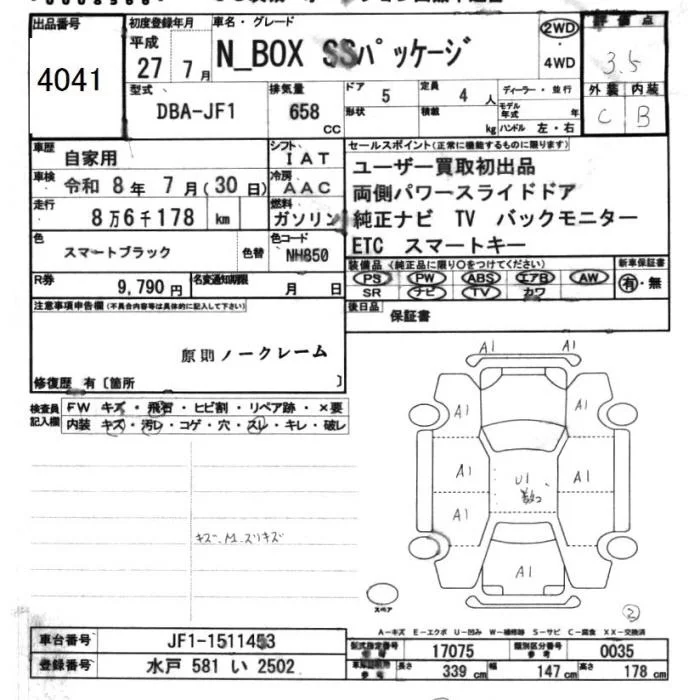 出品番号
4041
初度登録年月
平成
27 7月
車名・グレード
N_BOX SSパッケージ
2WD
・
4WD
評価点
3.5
外装 内装
C B
型式
DBA-JF1
排気量
658
cc
ドア 5
形状
定員 4 人
積載 kg
ディーラー・並行
モデル年式 年
ハンドル 左・右
車歴 自家用
シフト IAT
車検 令和 8年 7月(30日)
冷房 AAC
走行 8万6千178 km
燃料 ガソリン
色 スマートブラック 色替
色コード NH850
R券 9,790円
名変通知期限 月 日
セールスポイント(正常に機能するものに限ります)
ユーザー買取初出品
両側パワースライドドア
純正ナビ TV バックモニター
ETC スマートキー
装備品(純正品に限り○をつけてください)
PS PW ABS エアB AW
SR ナビ TV カワ
新車保証書
有・無
後日品 保証書
注意事項申告欄(不具合内容等は具体的に記入して下さい)
原則ノークレーム
修復歴 有〔箇所 〕
検査員記入欄
FW キズ・飛石・ヒビ割・リペア跡・×要
内装 キズ・汚レ・コゲ・穴・スレ・キレ・破レ
A1 A1
A1 A1
A1 U1 A1
A1
A1
スペア
A-キズ E-エクボ U-凹み W-補修跡 S-サビ C-腐食 XX-交換済
車台番号 JF1-1511453
登録番号 水戸 581 い 2502
型式指定番号 参考 17075
類別区分番号 参考 0035
参考 長さ 339 cm 幅 147 cm 高さ 178 cm